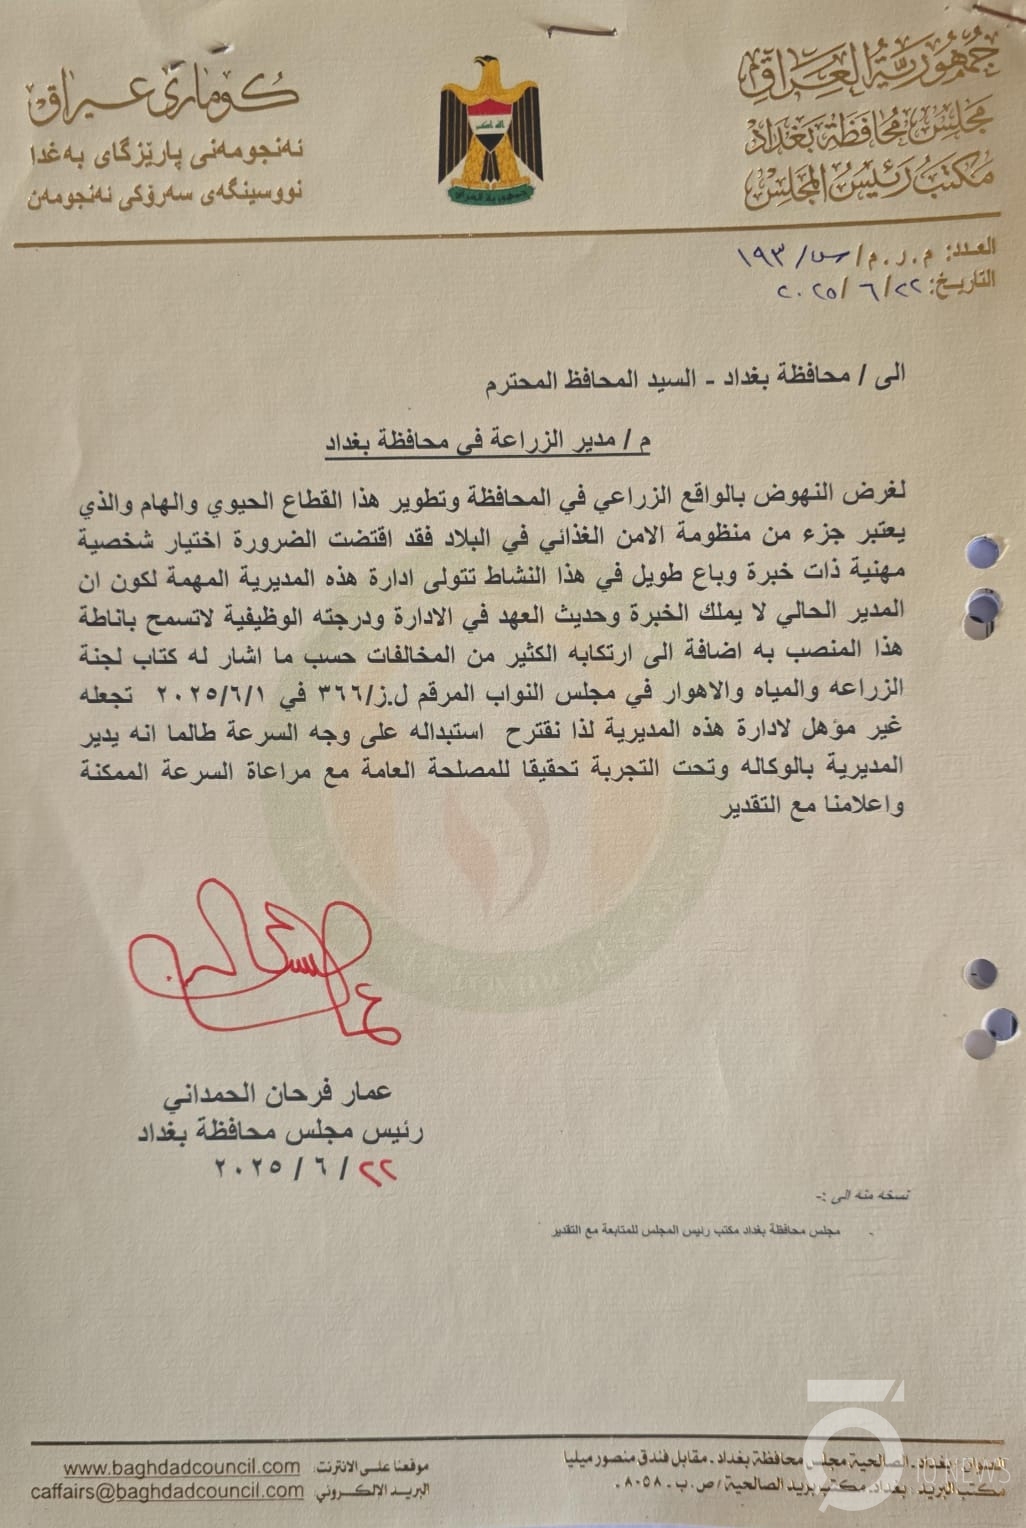 جمهورية العراق
مجلس محافظة بغداد
مكتب رئيس المجلس
كۆماری عیراق
ئەنجومەنی پارێزگای بەغدا
نووسینگەی سەرۆکی ئەنجومەن
الله اكبر
جمهورية العراق
العدد: م.ر.م/س/١٩٣
التاريخ: ٢٢/٦/٢٠٢٥
الى / محافظة بغداد - السيد المحافظ المحترم
م / مدير الزراعة في محافظة بغداد
لغرض النهوض بالواقع الزراعي في المحافظة وتطوير هذا القطاع الحيوي والهام والذي
يعتبر جزء من منظومة الامن الغذائي في البلاد فقد اقتضت الضرورة اختيار شخصية
مهنية ذات خبرة وباع طويل في هذا النشاط تتولى ادارة هذه المديرية المهمة لكون ان
المدير الحالي لا يملك الخبرة وحديث العهد في الادارة ودرجته الوظيفية لاتسمح باناطة
هذا المنصب به اضافة الى ارتكابه الكثير من المخالفات حسب ما اشار له كتاب لجنة
الزراعه والمياه والاهوار في مجلس النواب المرقم ل.ز/٣٦٦ في ٢٠٢٥/٦/١ تجعله
غير مؤهل لادارة هذه المديرية لذا نقترح استبداله على وجه السرعة طالما انه يدير
المديرية بالوكاله وتحت التجربة تحقيقا للمصلحة العامة مع مراعاة السرعة الممكنة
واعلامنا مع التقدير
عمار فرحان الحمداني
رئيس مجلس محافظة بغداد
٢٢ / ٦ / ٢٠٢٥
نسخه منه الى :-
- مجلس محافظة بغداد مكتب رئيس المجلس للمتابعة مع التقدير
العنوان: بغداد - الصالحية مجلس محافظة بغداد - مقابل فندق منصور ميليا
مكتب البريد: بغداد - مكتب بريد الصالحية / ص.ب - ٨٠٥٨.
موقعنا على الانترنت: www.baghdadcouncil.com
البريد الالكتروني: caffairs@baghdadcouncil.com
10 NEWS